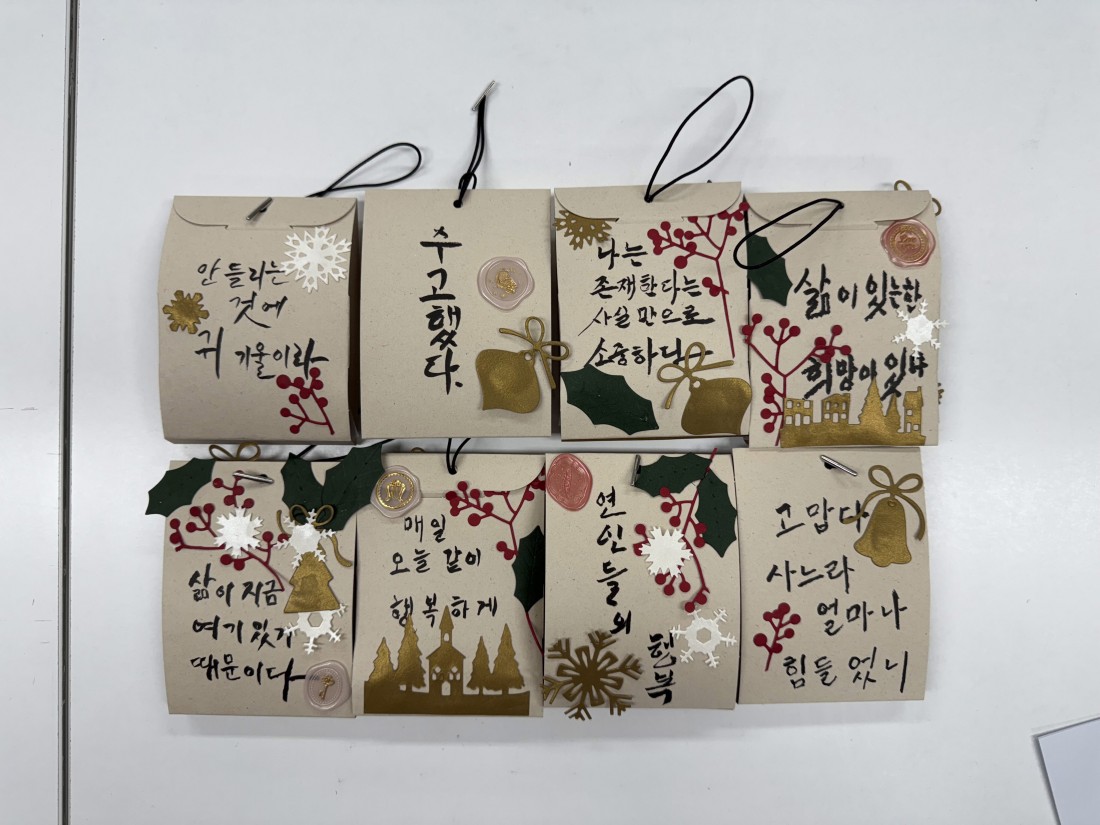 안 들리는
것에
귀 기울이라
수
고
했
다.
나는
존재한다는
사실 만으로
소중하다
삶이 있는한
희망이 있다
삶이 지금
여기 있기
때문이다
매일
오늘 같이
행복하게
연
인
들
의
행
복
고맙다
사느라
얼마나
힘들었니